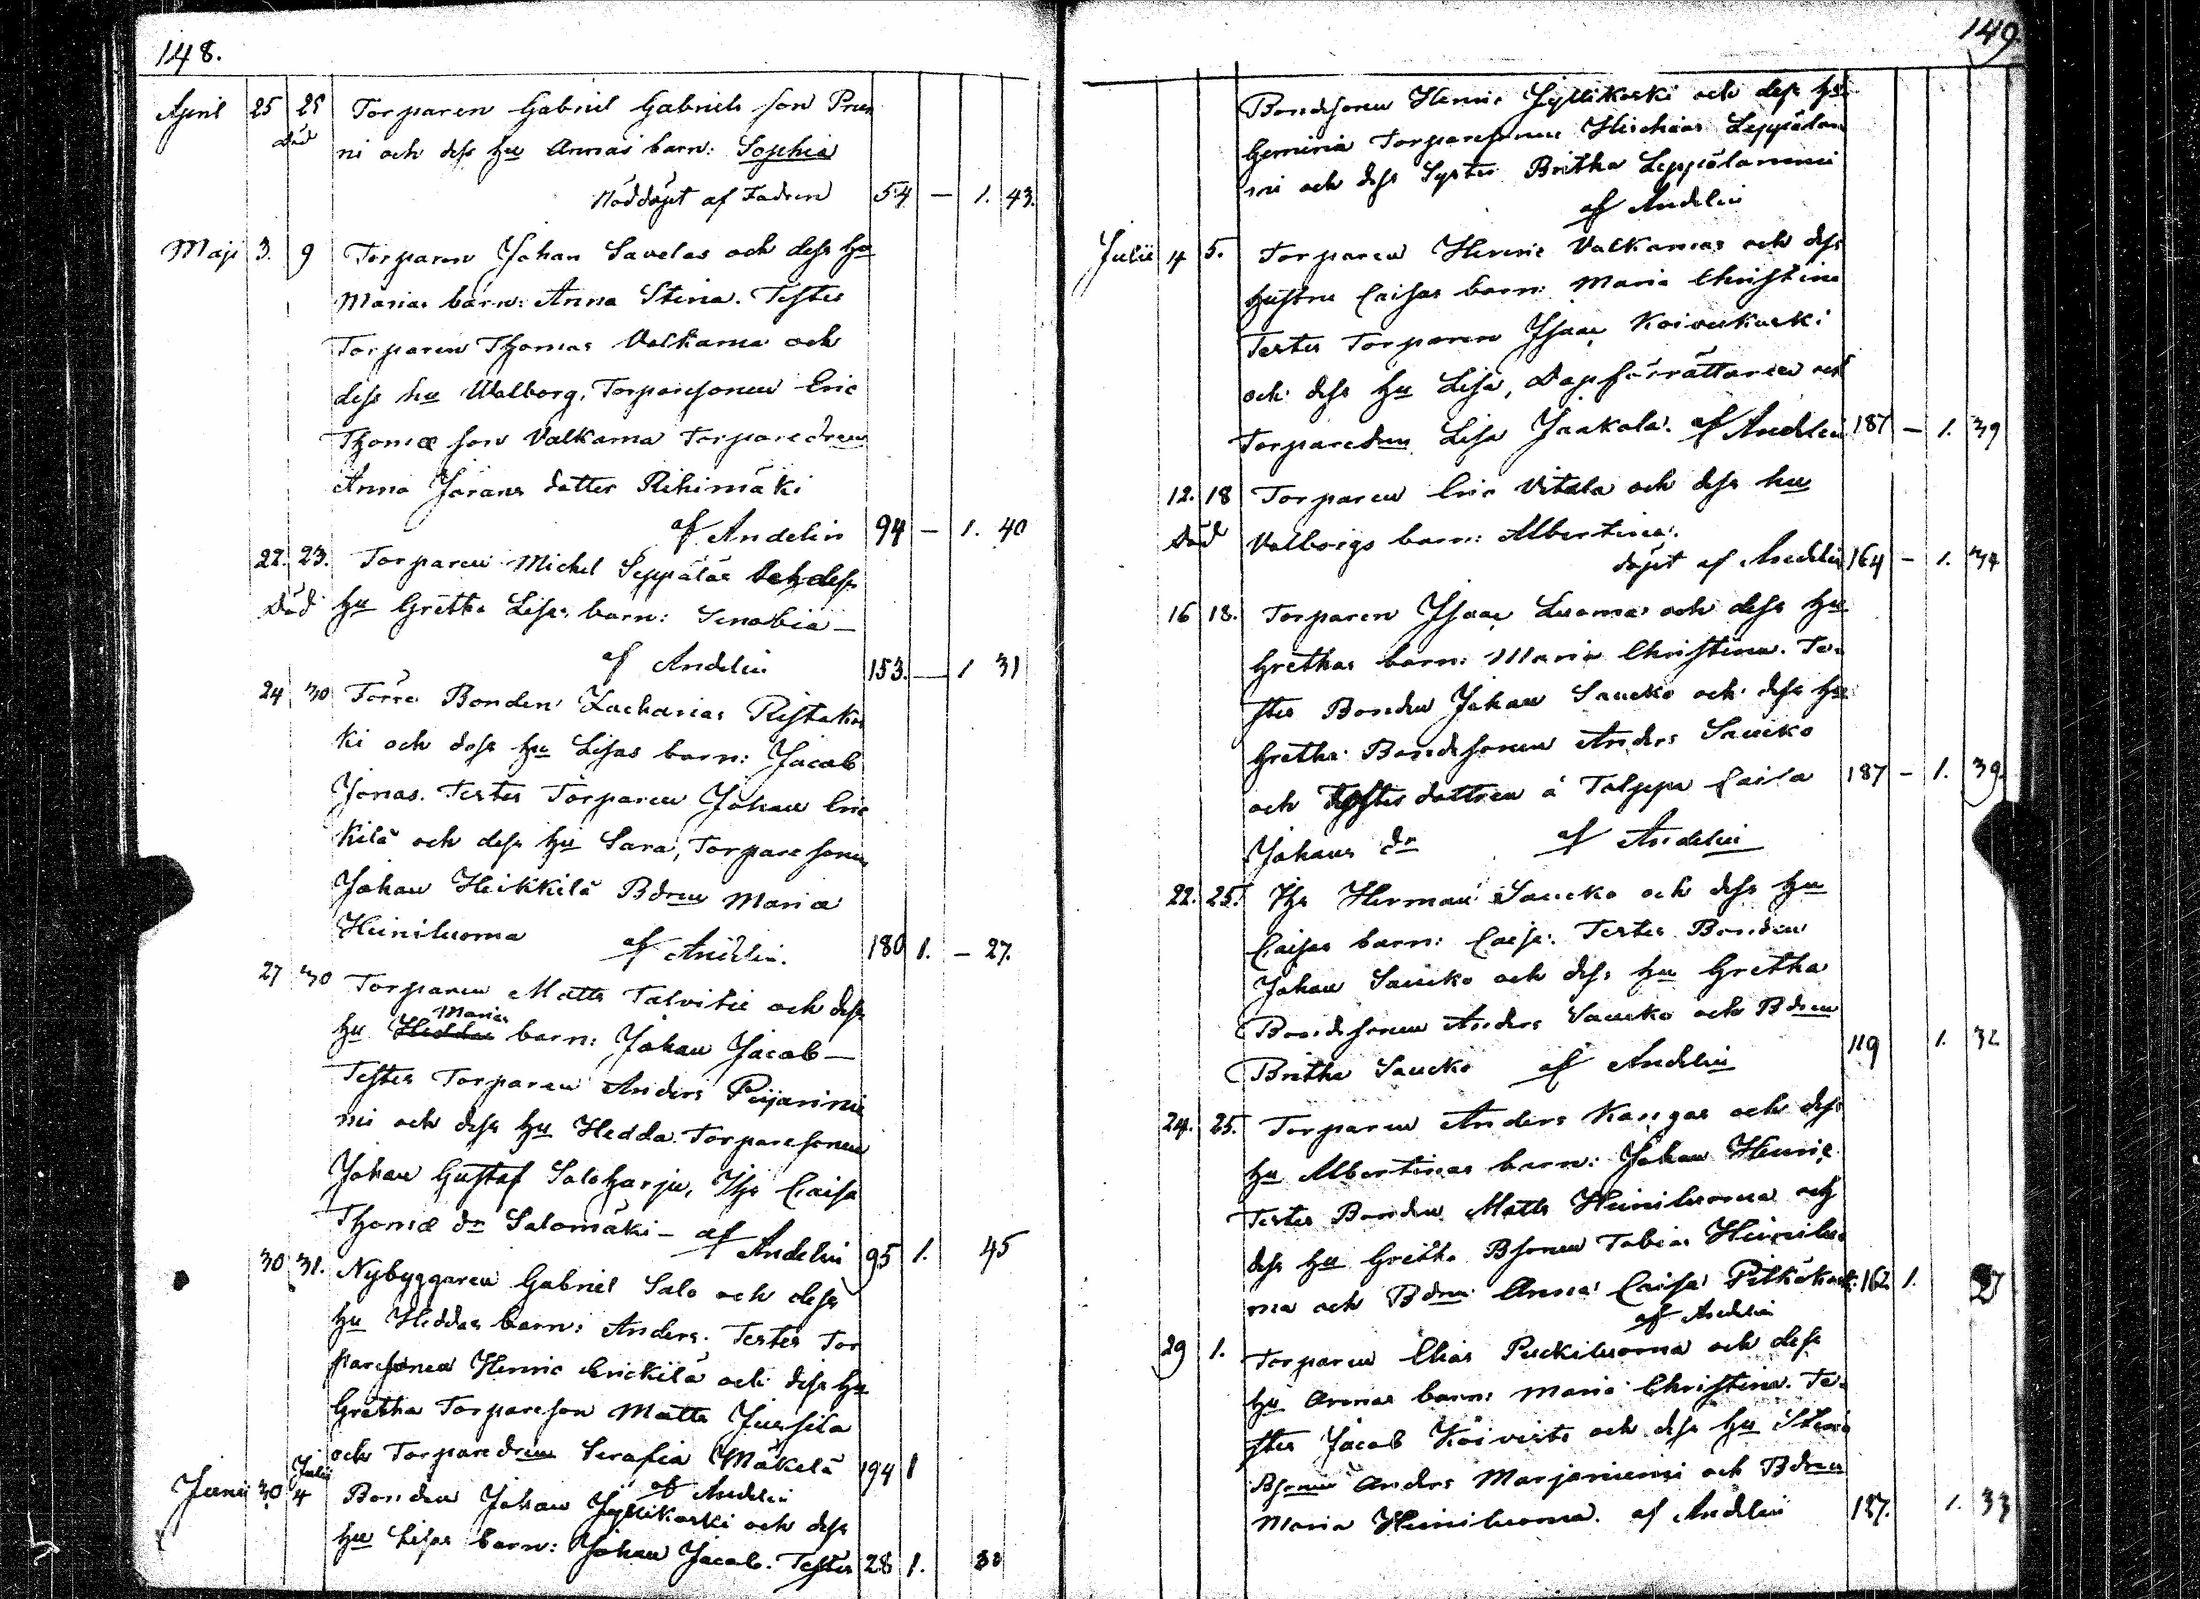 148.
April 25 25 Torparen Gabriel Gabriels son Prun
Död ni och dess hu Annas barn: Sophia
Nöddöpt af Fadren 54 — 1. 43.
Maji 3. 9 Torparen Johan Savelas och dess hu
Marias barn: Anna Stina. Testes
Torparen Thomas Valkama och
dess hu Walborg, Torparesonen Eric
Thomæ son Valkama Torparedren
Anna Jörans dotter Rihimäki
af Andelin 94 — 1. 40
22. 23. Torparen Michel Seppälas och dess
Död hu Gretha Lisas barn: Senobia —
af Andelin 153. — 1 31
24 30 Förre Bonden Zacharias Ristakos
ki och dess hu Lisas barn: Jacob
Jonas. Testes Torparen Johan Eric
kilä och dess hu Sara, Torparesonen
Johan Heikkilä Bdren Maria
Heiniluoma af Andelin. 180 1. — 27.
27 30 Torparen Matts Talvitie och dess
Marias
hu Heddas barn: Johan Jacob —
Testes Torparen Anders Peijarinie
mi och dess hu Hedda Torparesonen
Johan Gustaf Saloharju, Ihs Caisa
Thomæ dr Salomäki — af Andelin 95 1. 45
30 31. Nybyggaren Gabriel Salo och dess
hu Heddas barn: Anders. Testes Tor
paresonen Henric Erickilä och dess hu
Gretha Torpareson Matts Juusila
och Torparedren Serafia Mäkelä 194 1
af Andelin
Junii 30 Julii 4 Bonden Johan Jyllikoski och dess
hu Lisas barn: Johan Jacob. Testes 28 1. 30
149
Bondesonen Henric Jyllikoski och dess hu
Gemina Torparesonen Heschias Leppälam
mi och dess Syster Britha Leppälammi
af Andelin
Julii 4 5. Torparen Henric Valkamas och dess
hustru Caisas barn: Maria Christina
Testes Torparen Isaac Koivukoski
och dess hu Lisa, Dopförrättaren och
Torparedren Lisa Jaakola. af Andelin 187 — 1. 39
12. 18 Torparen Eric Vitala och dess hu
Död Valborgs barn: Albertina.
döpt af Andelin 164 — 1. 34
16 18. Torparen Isaac Luomas och dess hu
Grethas barn: Maria Christina. Te-
stes Bonden Johan Saucko och dess hu
Gretha Bondesonen Anders Saucko
och dottren å Talppa Caisa 187 — 1. 39.
Johans dr af Andelin
22. 25. Ihs Herman Saucko och dess hu
Caisas barn: Caisa. Testes Bonden
Johan Saucko och dess hu Gretha
Bondesonen Anders Saucko och Bdren
Britha Saucko af Andelin 119 1. 32
24. 25. Torparen Anders Kangas och dess
hu Albertinas barn: Johan Henric
Testes Bonden Matts Heiniluoma och
dess hu Gretha Bsonen Tobias Heiniluo
ma och Bdren Anna Caisa Pitkäkoski 162 1. 27
af Andelin
29 1. Torparen Elias Puckiluoma och dess
hu Annas barn: Maria Christina. Te-
stes Jacob Koivisto och dess hu Stina
Bsonen Anders Marjaniemi och Bdren
Maria Heiniluoma. af Andelin 187. 1. 33